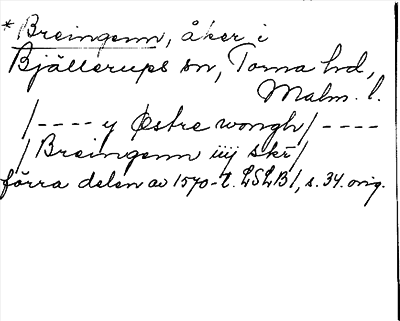 *Breingenn, åker i
Bjällerups sn, Torna hd,
Malm. l.
/---- y Østre wongh/----
/Breingenn iiij skr/
förra delen av 1570-t. LSLB1, s. 34. orig.